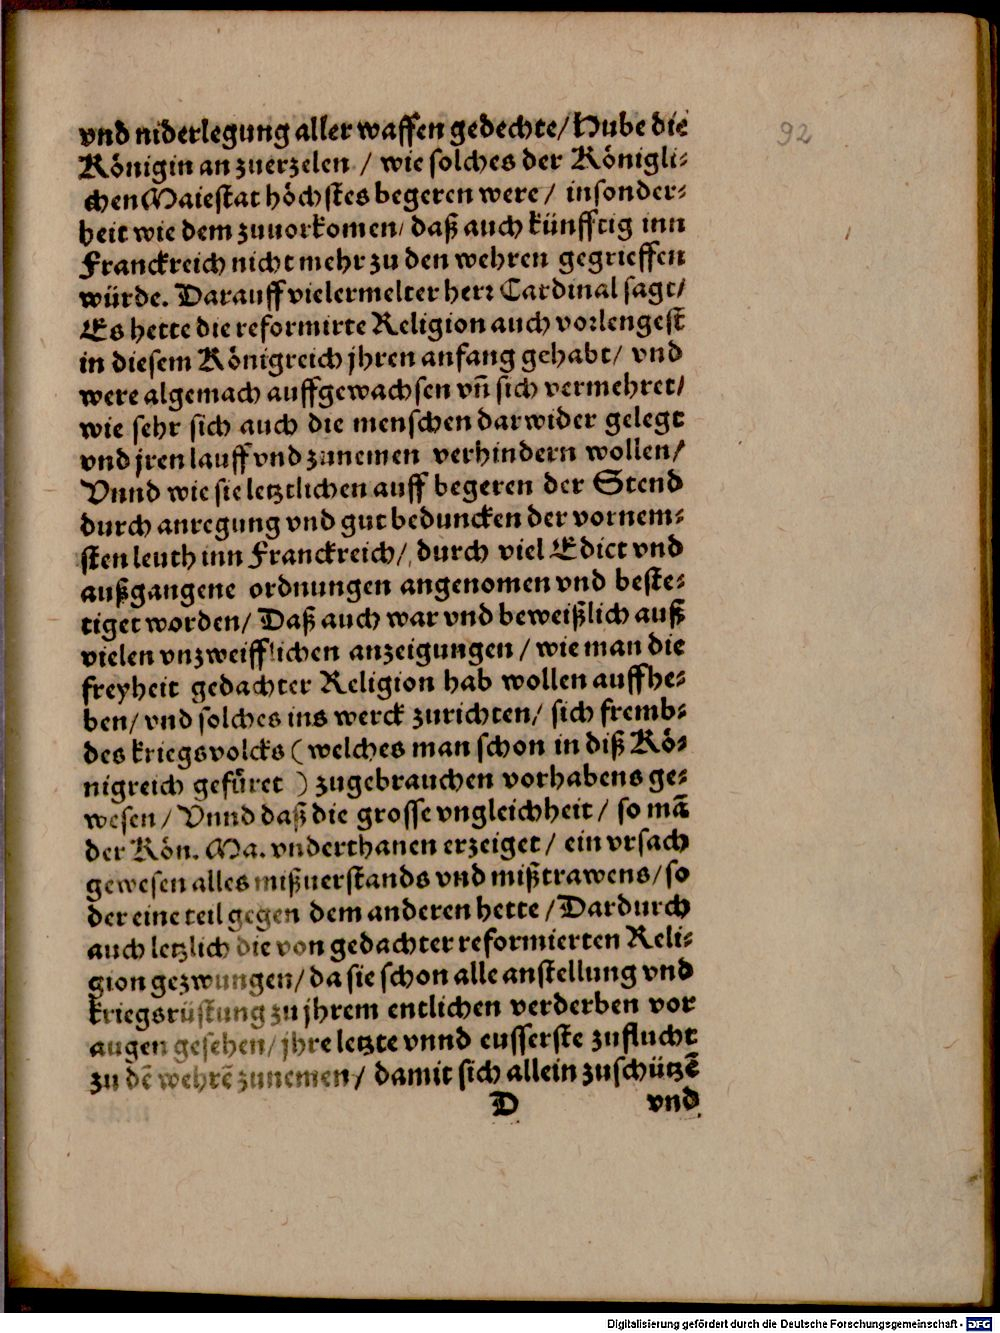 vnd niderlegung aller waffen gedechte/ Hube die
92
Königin an zuerzelen / wie solches der Königli-
chen Maiestat höchstes begeren were / insonder-
heit wie dem zuuorkomen/ daß auch künfftig inn
Franckreich nicht mehr zu den wehren gegrieffen
würde. Darauff vielermelter herr Cardinal sagt/
Es hette die reformirte Religion auch vorlengest
in diesem Königreich jhren anfang gehabt/ vnd
were algemach auffgewachsen vñ sich vermehret/
wie sehr sich auch die menschen darwider gelegt
vnd jren lauff vnd zunemen verhindern wollen/
Vnnd wie sie letztlichen auff begeren der Stend
durch anregung vnd gut beduncken der vornem-
sten leuth inn Franckreich/ durch viel Edict vnd
außgangene ordnungen angenomen vnd beste-
tiget worden/ Daß auch war vnd beweißlich auß
vielen vnzweifflichen anzeigungen / wie man die
freyheit gedachter Religion hab wollen auffhe-
ben/ vnd solches ins werck zurichten/ sich fremb-
des kriegsvolcks ( welches man schon in diß Kö-
nigreich gefüret ) zugebrauchen vorhabens ge-
wesen / Vnnd daß die grosse vngleichheit / so mã
der Kön. Ma. vnderthanen erzeiget / ein vrsach
gewesen alles mißuerstands vnd mißtrawens/ so
der eine teil gegen dem anderen hette / Dardurch
auch letzlich die von gedachter reformierten Reli-
gion gezwungen/ da sie schon alle anstellung vnd
kriegsrüstung zu jhrem entlichen verderben vor
augen gesehen/ jhre letzte vnnd eusserste zuflucht
zu dẽ wehrẽ zunemen/ damit sich allein zuschützẽ
D vnd
Digitalisierung gefördert durch die Deutsche Forschungsgemeinschaft - DFG